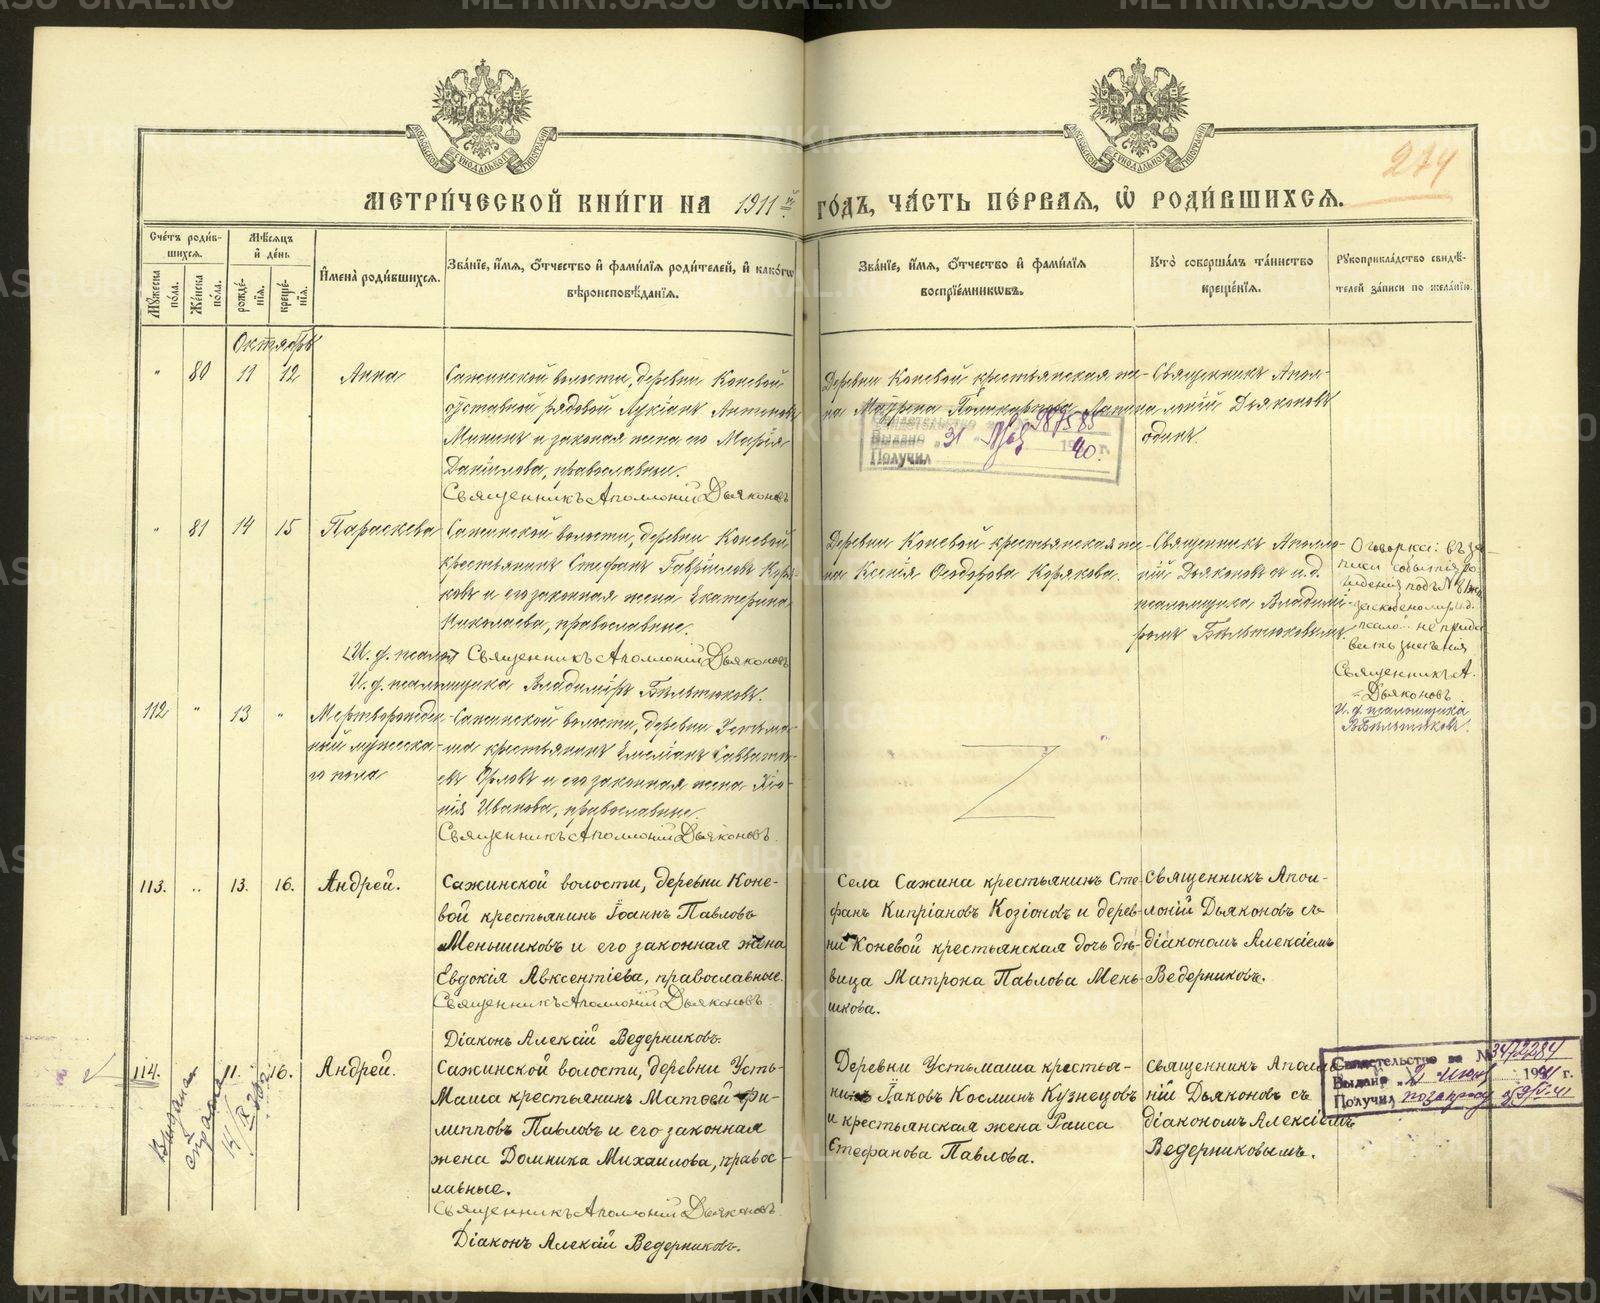 МЕТРИ́ЧЕСКОЙ КНИ́ГИ НА 1911й ГО́ДЪ, ЧА́СТЬ ПЕ́РВАЯ, Ѽ РОДИ́ВШИХСЯ.
274
Сче́тъ роди́в-
шихся.
Мꙋ́жеска по́ла.
Же́нска по́ла.
Мѣ́сяцъ и҆ де́нь
рожде́-нїя.
креще́-нїя.
И҆мена̀ роди́вшихся.
Зва́нїе, и҆́мя, ѻ҆́тчество и҆ фами́лїя роди́телей, и҆ како́гѡ
вѣроисповѣ́данїѧ.
Зва́нїе, и҆́мя, ѻ҆́тчество и҆ фами́лїя
воспрїе́мникѡвъ.
Кто̀ соверша́лъ та́инство
креще́нїя.
Рꙋкоприкла́дство свидѣ́-
телей за́писи по жела́нїю.
Октябрь
" 80 11 12 Анна
Сажинской волости, деревни Коневой
отставной рядовой Лукіанъ Антиповъ
Мининъ и законая жена его Марія
Даніилова, православные.
Священникъ Аполлоній Дьяконовъ
Деревни Коневой крестьянская же-
на Мавра Поликарпова
Священникъ Апол-
лоній Дьяконовъ
одинъ.
Свидетельство 987585
Выдано „31" 1940 г.
Получил
" 81 14 15 Параскева
Сажинской волости, деревни Коневой
крестьянинъ Стефанъ Гавріиловъ Коря-
ковъ и его законная жена Екатерина
Николаева, православные.
[И. д. псал.] Священникъ Аполлоній Дьяконовъ
И. д. псаломщика Владиміръ Бѣльтюковъ.
Деревни Коневой крестьянская же-
на Ксенія Ѳеодорова Корякова.
Священникъ Аполло-
ній Дьяконовъ съ и.д.
псаломщика Владимі-
ромъ Бѣльтюковымъ.
Оговорка: въ за-
писи событія ро-
жденія подъ № 81 жен.
заскобленому и.д.
псало" не прида-
вать значенія
Священникъ А.
Дьяконовъ.
И. д. псаломщика
В. Бѣльтюковъ.
112 " 13 "
Мертворожден-
ный мужеска-
го пола
Сажинской волости, деревни Устьма-
ша крестьянинъ Емеліанъ Савватѣ-
евъ Орловъ и его законная жена Хіо-
нія Иванова, православные.
Священникъ Аполлоній Дьяконовъ.
113. " 13. 16. Андрей.
Сажинской волости, деревни Коне-
вой крестьянинъ Іоаннъ Павловъ
Меньшиковъ и его законная жена
Евдокія Авксентіева, православные.
Священникъ Аполлоній Дьяконовъ.
Діаконъ Алексій Ведерниковъ.
Села Сажина крестьянинъ Сте-
фанъ Кипріановъ Козіоновъ и дерев-
ни Коневой крестьянская дочь дѣ-
вица Матрона Павлова Мень-
шкова.
Священникъ Апол-
лоній Дьяконовъ съ
діакономъ Алексіемъ
Ведерниковъ.
114. 11. 16. Андрей.
Выдана
справка
Сажинской волости, деревни Усть-
Маша крестьянинъ Матѳей Фи-
липповъ Павловъ и его законная
жена Домника Михаилова, правос-
лавные.
Священникъ Аполлоній Дьяконовъ
Діаконъ Алексій Ведерниковъ.
Деревни Устьмаша крестья-
нинъ Іаковъ Косминъ Кузнецовъ
и крестьянская жена Раиса
Стефанова Павлова.
Священникъ Аполло-
ній Дьяконовъ съ
діакономъ Алексіемъ
Ведерниковымъ.
Свидетельство за № 3472284
Выдано „2" июня 1941 г.
Получил по запросу
METRIKI.GASO-URAL.RU